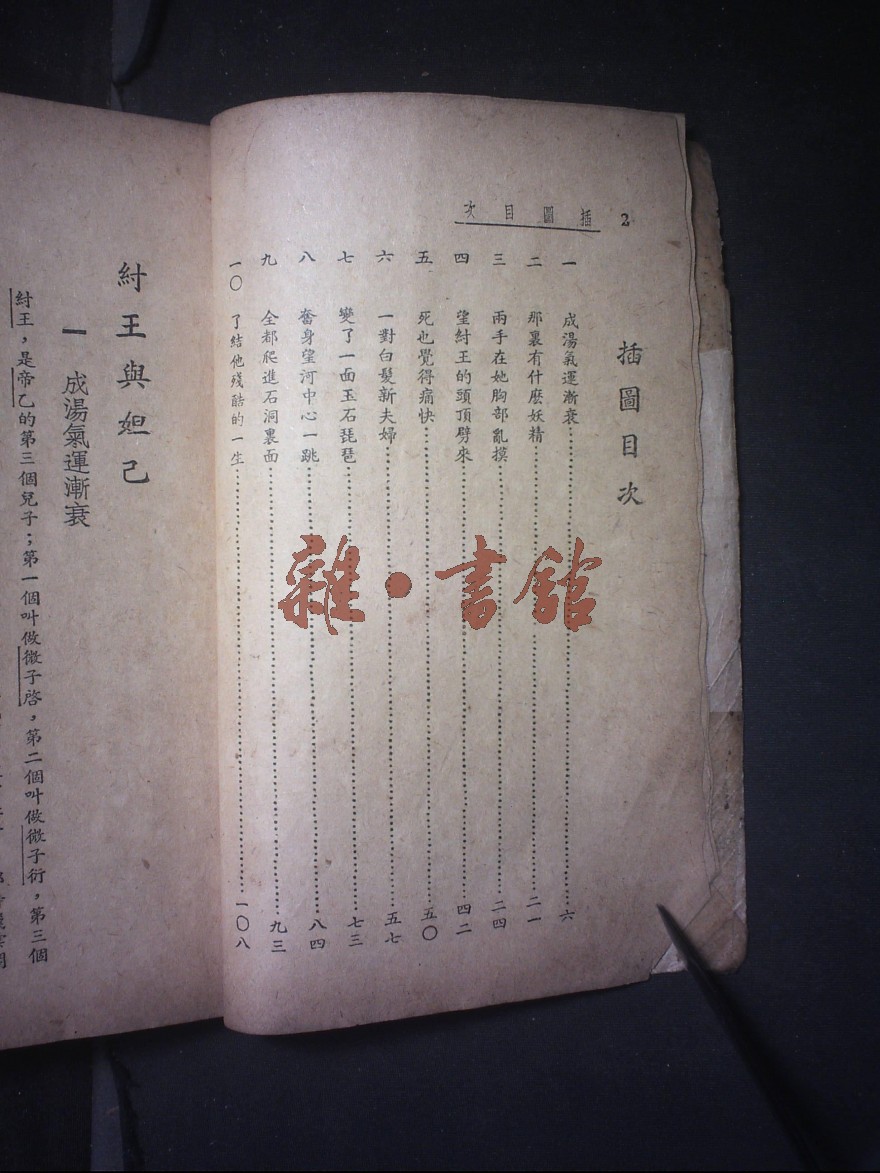 2 插圖目次
插圖目次
一 成湯氣運漸衰……六
二 那裏有什麽妖精……二一
三 兩手在她胸部亂摸……二四
四 望紂王的頭頂劈來……四二
五 死也覺得痛快……五〇
六 一對白髮新夫婦……五七
七 變了一面玉石琵琶……七三
八 奮身望河中心一跳……八四
九 全都爬進石洞裏面……九三
一〇 了結他殘酷的一生……一〇八
雜·書館
紂王與妲己
一 成湯氣運漸衰
紂王，是帝乙的第三個兒子；第一個叫做微子啓，第二個叫做微子衍，第三個